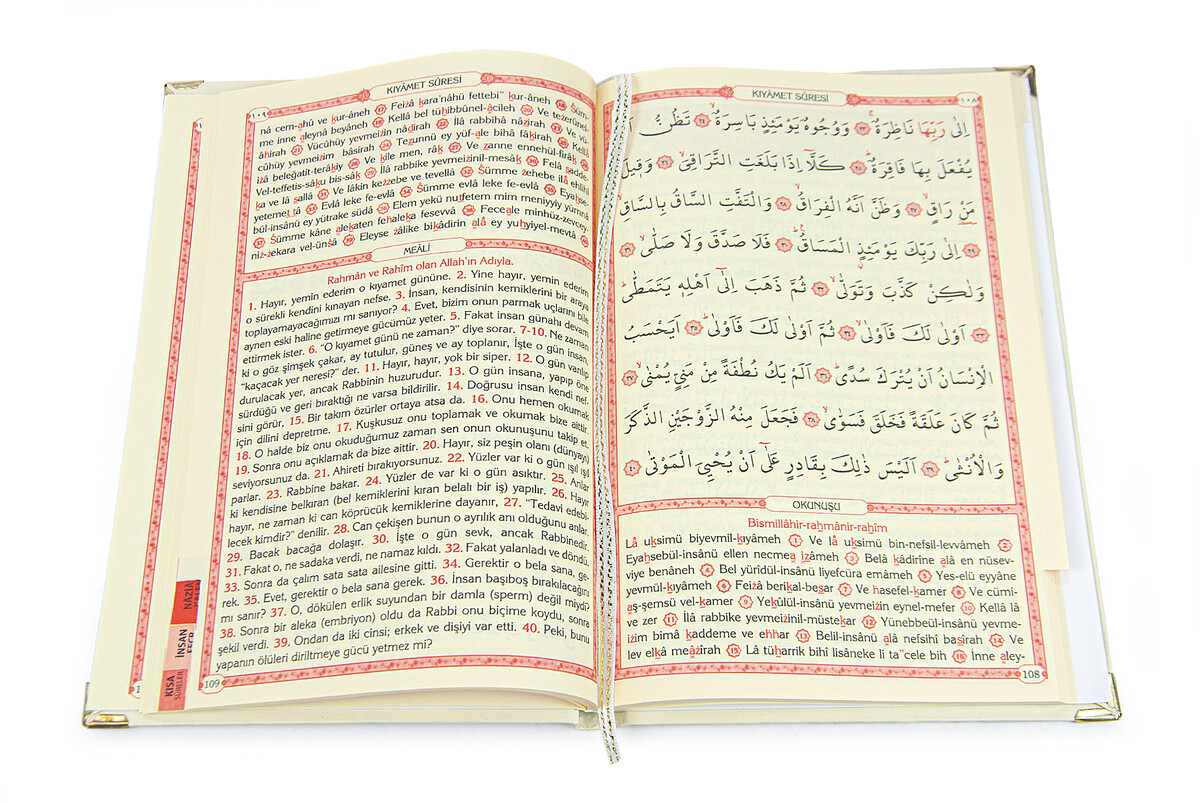 KIYÂMET SÛRESİ
١٠٨
اِلٰى رَبِّهَا نَاظِرَةٌۚ ٢٣ وَوُجُوهٌ يَوْمَئِذٍ بَاسِرَةٌۙ ٢٤ تَظُنُّ
يُفْعَلَ بِهَا فَاقِرَةٌۜ ٢٥ كَلَّٓا اِذَا بَلَغَتِ التَّرَاقِيَۙ ٢٦ وَقٖيلَ
مَنْ رَاقٍۙ ٢٧ وَظَنَّ اَنَّهُ الْفِرَاقُۙ ٢٨ وَالْتَفَّتِ السَّاقُ بِالسَّاقِۙ
٢٩ اِلٰى رَبِّكَ يَوْمَئِذٍ الْمَسَاقُۜ ٣٠ فَلَا صَدَّقَ وَلَا صَلّٰىۙ ٣١
وَلٰكِنْ كَذَّبَ وَتَوَلّٰىۙ ٣٢ ثُمَّ ذَهَبَ اِلٰٓى اَهْلِهٖ يَتَمَطّٰىۜ
٣٣ اَوْلٰى لَكَ فَاَوْلٰىۙ ٣٤ ثُمَّ اَوْلٰى لَكَ فَاَوْلٰىۜ ٣٥ اَيَحْسَبُ
الْاِنْسَانُ اَنْ يُتْرَكَ سُدًىۜ ٣٦ اَلَمْ يَكُ نُطْفَةً مِنْ مَنِيٍّ يُمْنٰىۙ ٣٧
ثُمَّ كَانَ عَلَقَةً فَخَلَقَ فَسَوّٰىۙ ٣٨ فَجَعَلَ مِنْهُ الزَّوْجَيْنِ الذَّكَرَ
وَالْاُنْثٰىۜ ٣٩ اَلَيْسَ ذٰلِكَ بِقَادِرٍ عَلٰٓى اَنْ يُحْيِيَ الْمَوْتٰى ٤٠
OKUNUŞU
Bismillâhir-rahmânir-rahîm
Lâ uksimü biyevmil-kıyâmeh 1 Ve lâ uksimü bin-nefsil-levvâmeh 2
Eyahsebül-insânü ellen necmea izâmeh 3 Belâ kâdirîne alâ en nüsev-
viye benâneh 4 Bel yürîdül-insânü liyefcüra emâmeh 5 Yes-elü eyyâne
yevmül-kıyâmeh 6 Feizâ berikal-besar 7 Ve hasefel-kamer 8 Ve cümi-
aş-şemsü vel-kamer 9 Yekûlül-insânü yevmeizin eynel-mefer 10 Kellâ lâ
ve zer 11 İlâ rabbike yevmeizinil-müstekar 12 Yünebbeül-insânü yevme-
izim bimâ kaddeme ve ehhar 13 Belil-insânü alâ nefsihî basîrah 14 Ve
lev elkâ meâzîrah 15 Lâ tüharrik bihî lisâneke li ta"cele bih 16 İnne aley-
108
KIYÂMET SÛRESİ
١٠٩
nâ cem-ahû ve kur-âneh 17 Feizâ kara'nâhü fettebi" kur-âneh 18 Süm-
me inne aleynâ beyâneh 19 Kellâ bel tühibbûnel-âcileh 20 Ve tezerûnel-
âhirah 21 Vücûhüy yevmeizin nâdirah 22 İlâ rabbihâ nâzirah 23 Ve vü-
cûhüy yevmeizim bâsirah 24 Tezunnü ey yüf-ale bihâ fâkirah 25 Kellâ
izâ beleğatit-terâkiy 26 Ve kîle men, râk 27 Ve zanne ennehül-firâk 28
Vel-teffetis-sâku bis-sâk 29 İlâ rabbike yevmeizinil-mesâk 30 Felâ sadde-
ka ve lâ sallâ 31 Ve lâkin kezzebe ve tevellâ 32 Sümme zehebe ilâ ehlihî
yetemettâ 33 Evlâ leke fe-evlâ 34 Sümme evlâ leke fe-evlâ 35 Eyahse-
bül-insânü ey yütrake südâ 36 Elem yekü nutfetem mim meniyyiy yümnâ
37 Sümme kâne alekaten fehaleka fesevvâ 38 Feceale minhüz-zevcey-
niz-zekara vel-ünsâ 39 Eleyse zâlike bikâdirin alâ ey yuhyiyel-mevtâ 40
MEÂLİ
Rahmân ve Rahîm olan Allah'ın Adıyla.
1. Hayır, yemin ederim o kıyamet gününe. 2. Yine hayır, yemin ederim
o sürekli kendini kınayan nefse. 3. İnsan, kendisinin kemiklerini bir araya
toplayamayacağımızı mı sanıyor? 4. Evet, bizim onun parmak uçlarını bile
aynen eski haline getirmeye gücümüz yeter. 5. Fakat insan günahı devam
ettirmek ister. 6. "O kıyamet günü ne zaman?" diye sorar. 7-10. Ne zaman
ki o göz şimşek çakar, ay tutulur, güneş ve ay toplanır, İşte o gün insan,
"kaçacak yer neresi?" der. 11. Hayır, hayır, yok bir siper. 12. O gün varılıp
durulacak yer, ancak Rabbinin huzurudur. 13. O gün insana, yapıp öne
sürdüğü ve geri bıraktığı ne varsa bildirilir. 14. Doğrusu insan kendi nef-
sini görür, 15. Bir takım özürler ortaya atsa da. 16. Onu hemen okumak
için dilini depretme. 17. Kuşkusuz onu toplamak ve okumak bize aittir.
18. O halde biz onu okuduğumuz zaman sen onun okunuşunu takip et.
19. Sonra onu açıklamak da bize aittir. 20. Hayır, siz peşin olanı (dünyayı)
seviyorsunuz da. 21. Ahireti bırakıyorsunuz. 22. Yüzler var ki o gün ışıl ışıl
parlar. 23. Rabbine bakar. 24. Yüzler de var ki o gün asıktır. 25. Anlar
ki kendisine belkıran (bel kemiklerini kıran belalı bir iş) yapılır. 26. Hayır
hayır, ne zaman ki can köprücük kemiklerine dayanır, 27. "Tedavi edebi-
lecek kimdir?" denilir. 28. Can çekişen bunun o ayrılık anı olduğunu anlar.
29. Bacak bacağa dolaşır. 30. İşte o gün sevk, ancak Rabbinedir.
31. Fakat o, ne sadaka verdi, ne namaz kıldı. 32. Fakat yalanladı ve döndü.
33. Sonra da çalım sata sata ailesine gitti. 34. Gerektir o bela sana, ge-
rek. 35. Evet, gerektir o bela sana gerek. 36. İnsan başıboş bırakılacağını
mı sanır? 37. O, dökülen erlik suyundan bir damla (sperm) değil miydi?
38. Sonra bir aleka (embriyon) oldu da Rabbi onu biçime koydu, sonra
şekil verdi. 39. Ondan da iki cinsi; erkek ve dişiyi var etti. 40. Peki, bunu
yapanın ölüleri diriltmeye gücü yetmez mi?
109
NÂZİÂ
İNSAN
FECR
KISA
SÛRELER